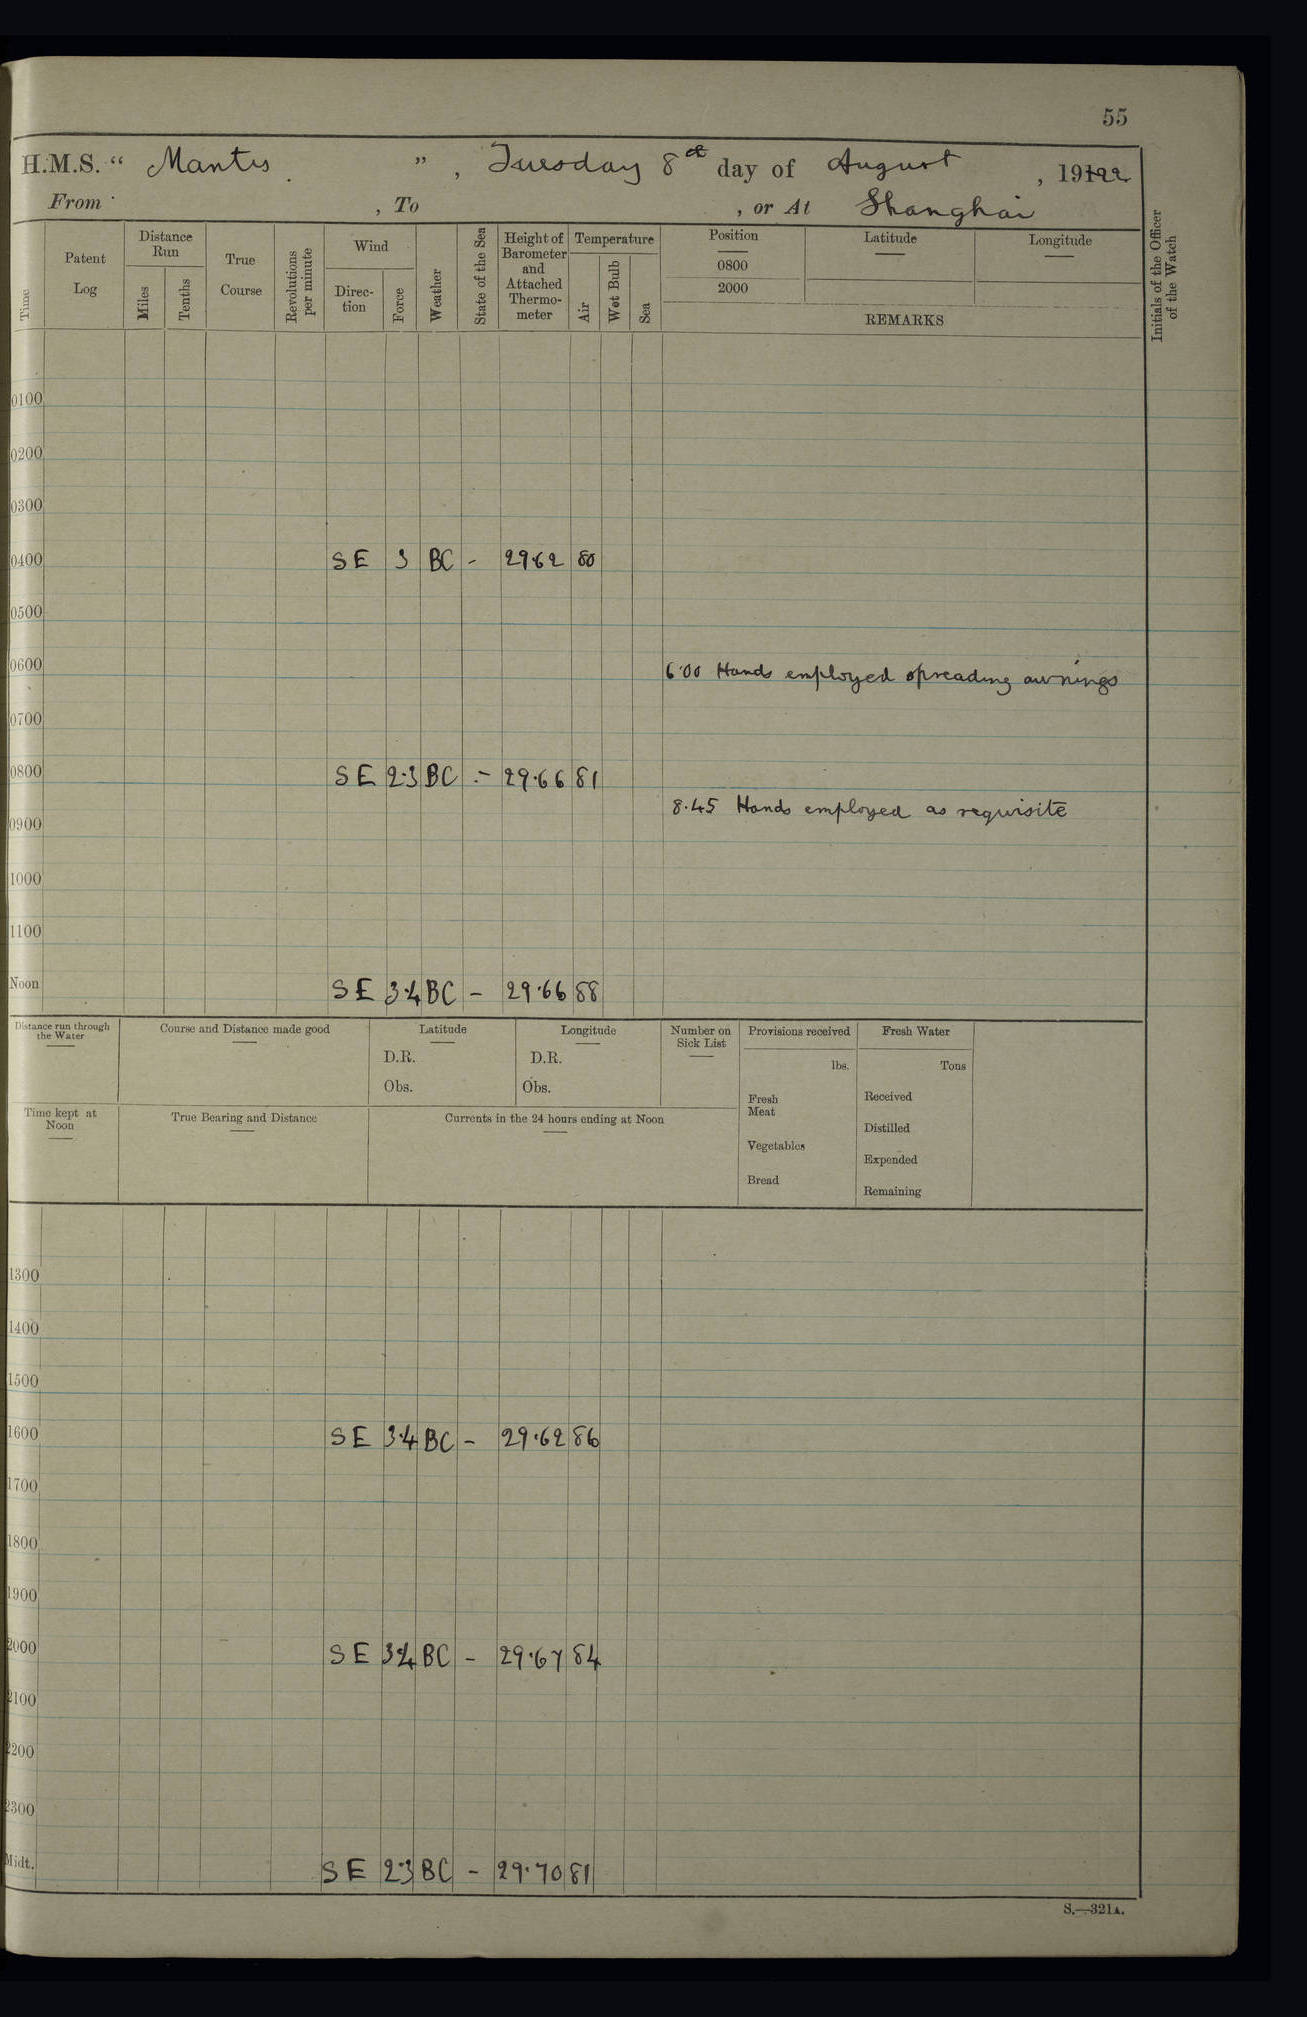 55
H.M.S. “ Mantis ”, Tuesday 8th day of August , 19122
From , To , or At Shanghai
Time
Patent Log
Distance Run
Miles
Tenths
True Course
Revolutions per minute
Wind
Direc-tion
Force
Weather
State of the Sea
Height of Barometer and Attached Thermo-meter
Temperature
Air
Wet Bulb
Sea
Position Latitude Longitude
0800
2000
REMARKS
Initials of the Officer of the Watch
0100
0200
0300
0400 SE 3 BC - 29.62 80
0500
0600 6.00 Hands employed spreading awnings
0700
0800 SE 2.3 BC - 29.66 81
8.45 Hands employed as requisite
0900
1000
1100
Noon SE 3.4 BC - 29.66 88
Distance run through the Water
Course and Distance made good
Latitude
D.R.
Obs.
Longitude
D.R.
Obs.
Number on Sick List
Provisions received
lbs.
Fresh Meat
Vegetables
Bread
Fresh Water
Tons
Received
Distilled
Expended
Remaining
Time kept at Noon
True Bearing and Distance
Currents in the 24 hours ending at Noon
1300
1400
1500
1600 SE 3.4 BC - 29.62 86
1700
1800
1900
2000 SE 3.4 BC - 29.67 84
2100
2200
2300
Midt. SE 2.3 BC - 29.70 81
S.—321A.